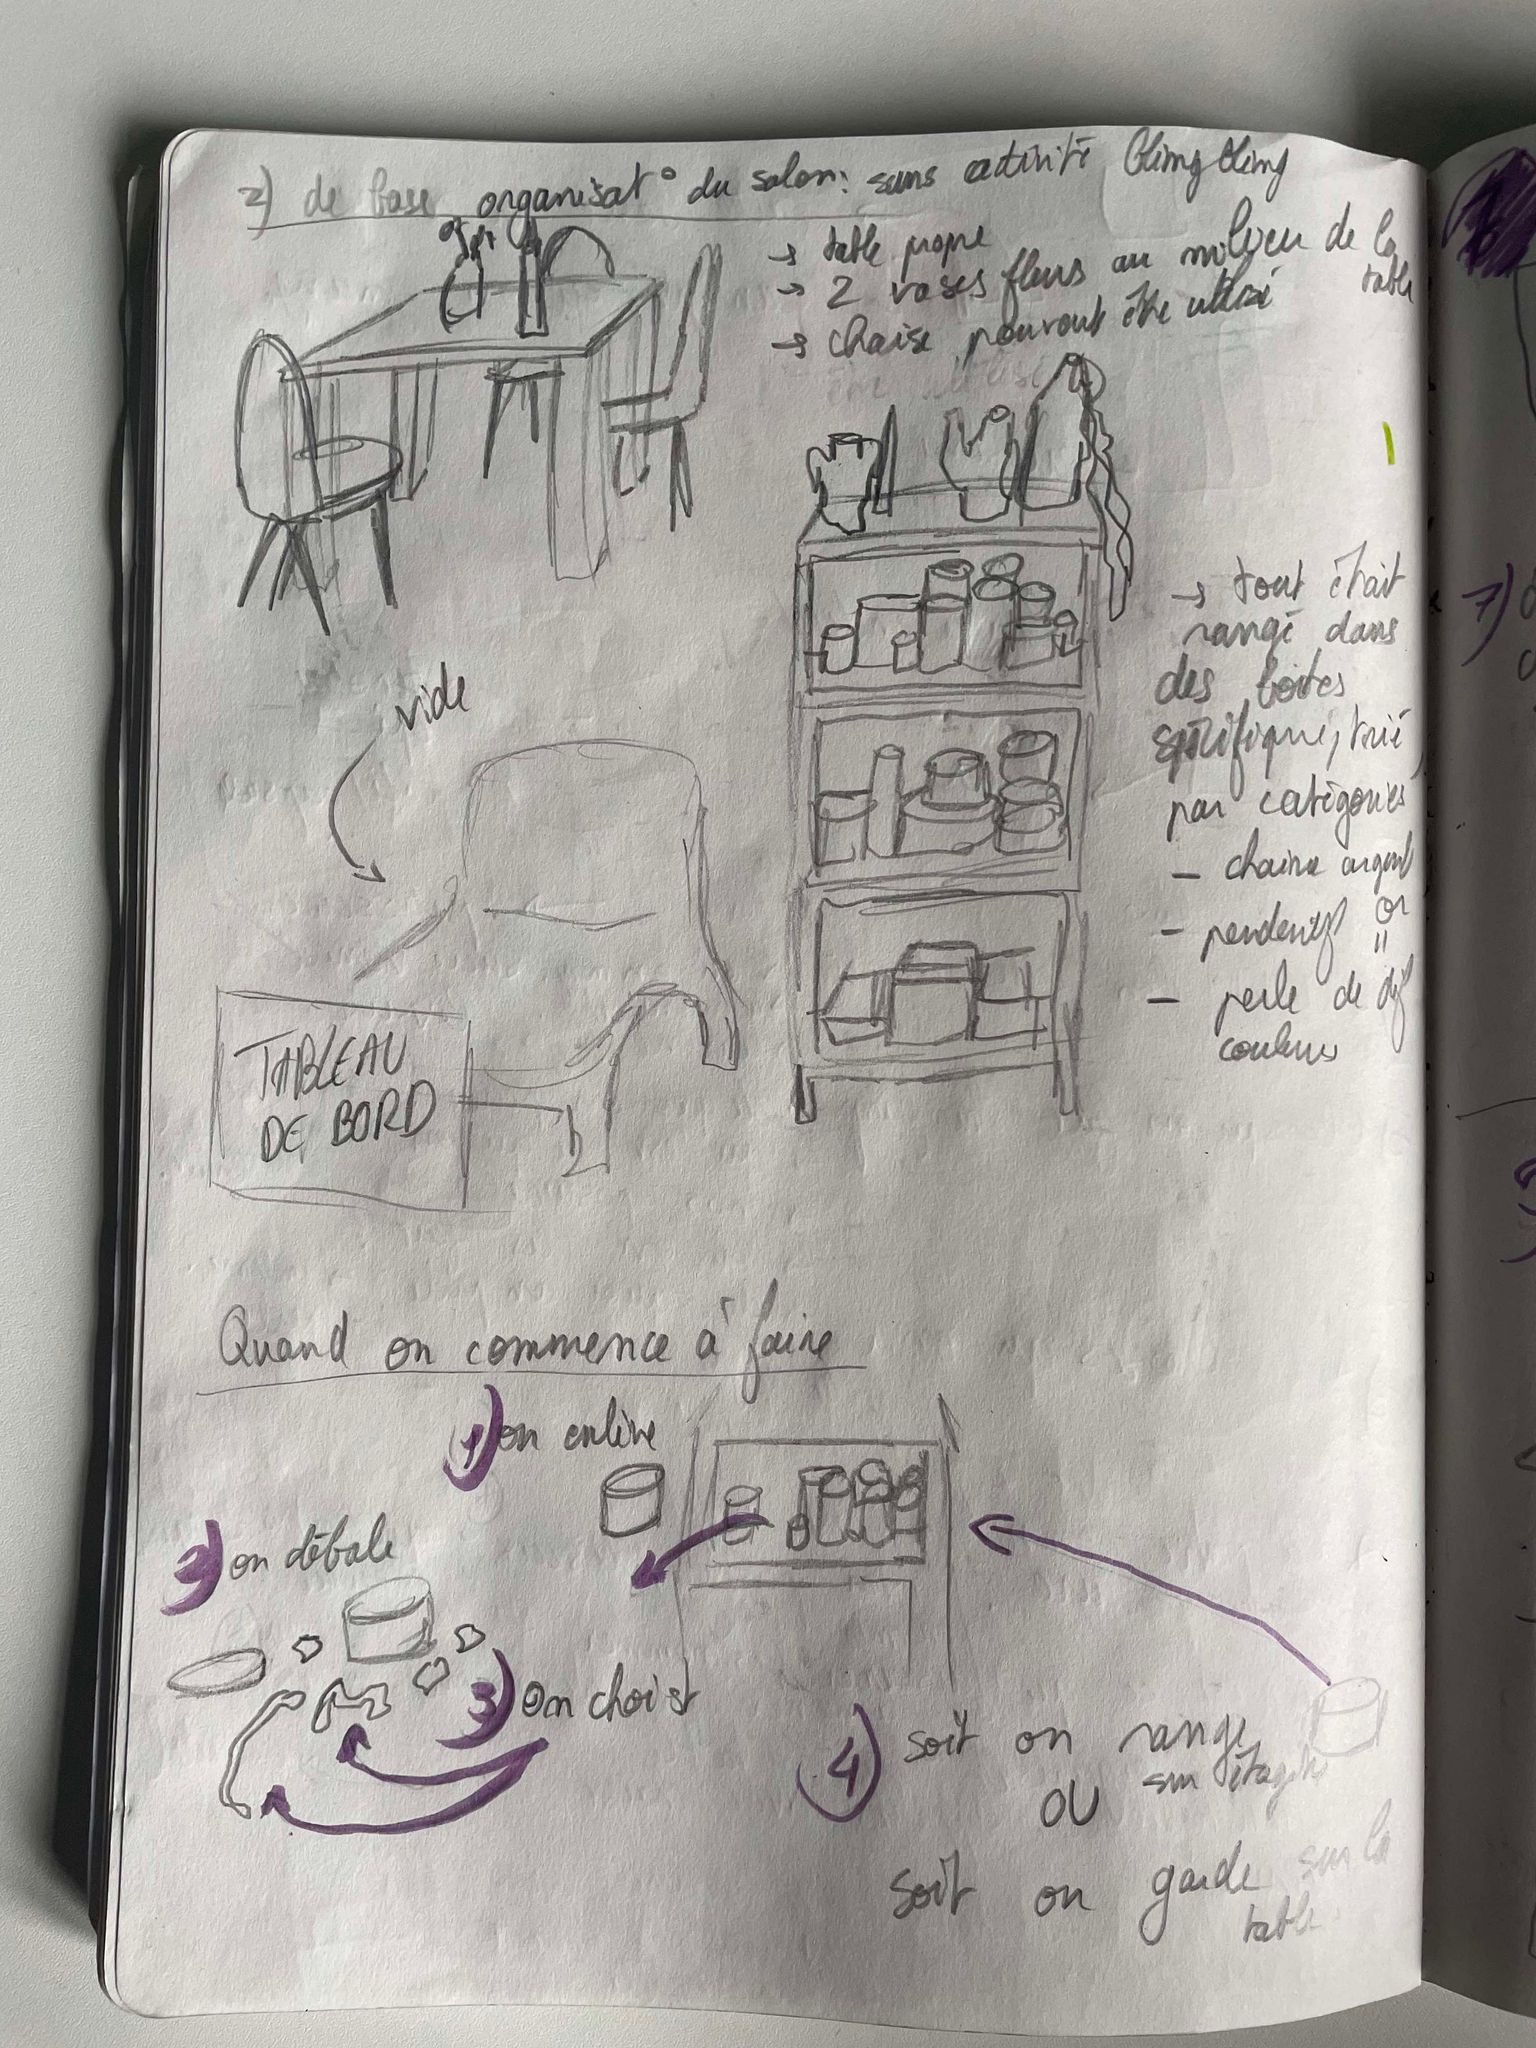 2) de base organisat° du salon: sans activité bling bling
→ table propre
→ 2 vases fleurs au milieu de la table
→ chaise pouvant être utilisé
vide
→ tout était
rangé dans
des boites
spécifique, trié
par catégories
- chaine argent
or
- pendentif "
- perle de dif
couleurs
TABLEAU
DE BORD
Quand on commence à faire
1) on enlève
2) on débale
3) on choist
4) soit on range
sur étagère
OU
soit on garde sur la
table
7)